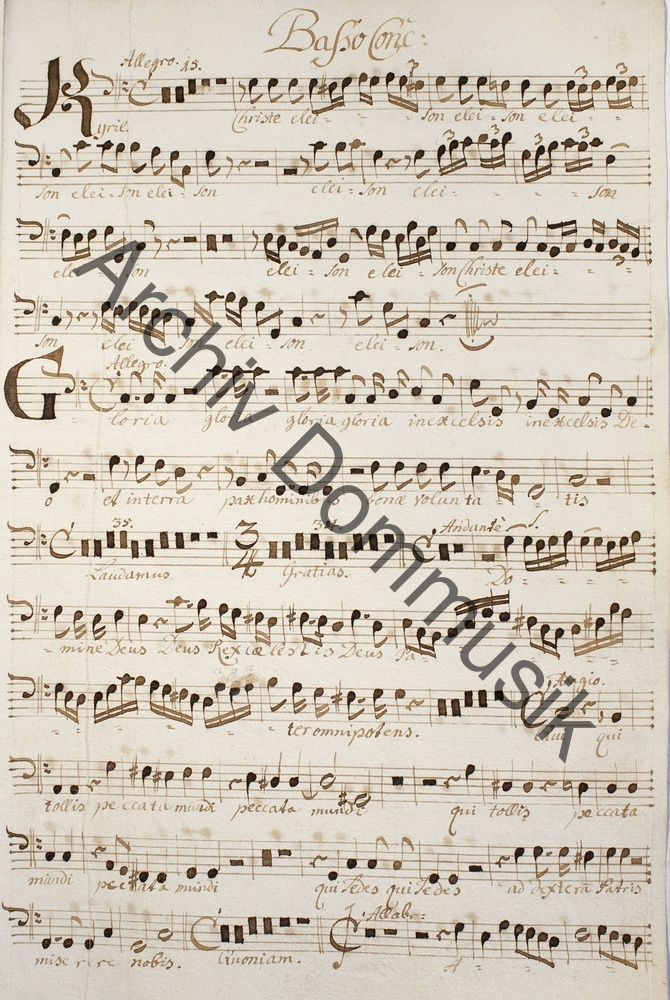 Basso Conc:
Allegro. 15.
Kyrie. Christe elei - - - son elei - son elei - -
son elei - son elei - son elei - son elei - - - - son
elei - son elei - son elei - son Christe elei - - - -
son elei - son elei - son elei - son.
Allegro.
Gloria gloria gloria gloria in excelsis in excelsis De -
o et in terra pax hominibus bonæ volunta - tis
35. 34. Andante S.
Laudamus. Gratias. Do - - - -
- mine Deus Deus Rex cœlestis Deus Pa - - - -
- - - - - - ter omnipotens.
Adagio.
qui
tollis peccata mundi peccata mundi qui tollis peccata
mundi peccata mundi qui sedes qui sedes ad dexteram Patris
miserere nobis. Quoniam. A - - - -
Allabr:
Archiv Dommusik